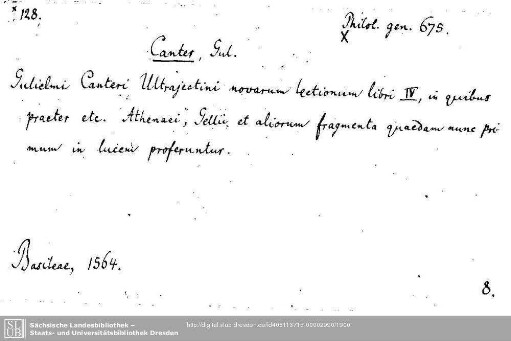 * 128.
Philol. gen. 675.
X
Canter, Gul.
Gulielmi Canteri Ultrajectini novarum lectionum libri IV, in quibus
praeter etc. Athenaei, Gellii, et aliorum fragmenta quaedam nunc pri
mum in lucem proferuntur.
Basileae, 1564.
8.
SLUB
Sächsische Landesbibliothek –
Staats- und Universitätsbibliothek Dresden